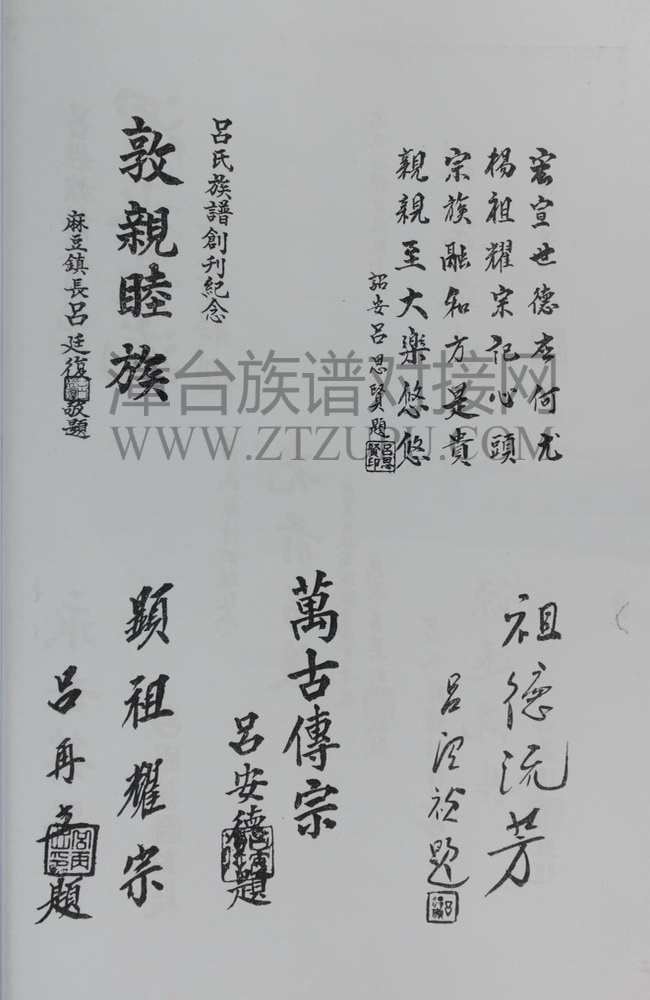 宏宣世德在何尤
楊祖耀宗記心頭
宗族融和方是貴
親親至大樂悠悠
詔安呂思賢題
呂思賢印
呂氏族譜創刊紀念
敦親睦族
麻豆鎮長呂廷復敬題
漳台族谱对接网
WWW.ZTZUPU.COM
祖德流芳
呂 禎題
萬古傳宗
呂安德題
顯祖耀宗
呂再 題